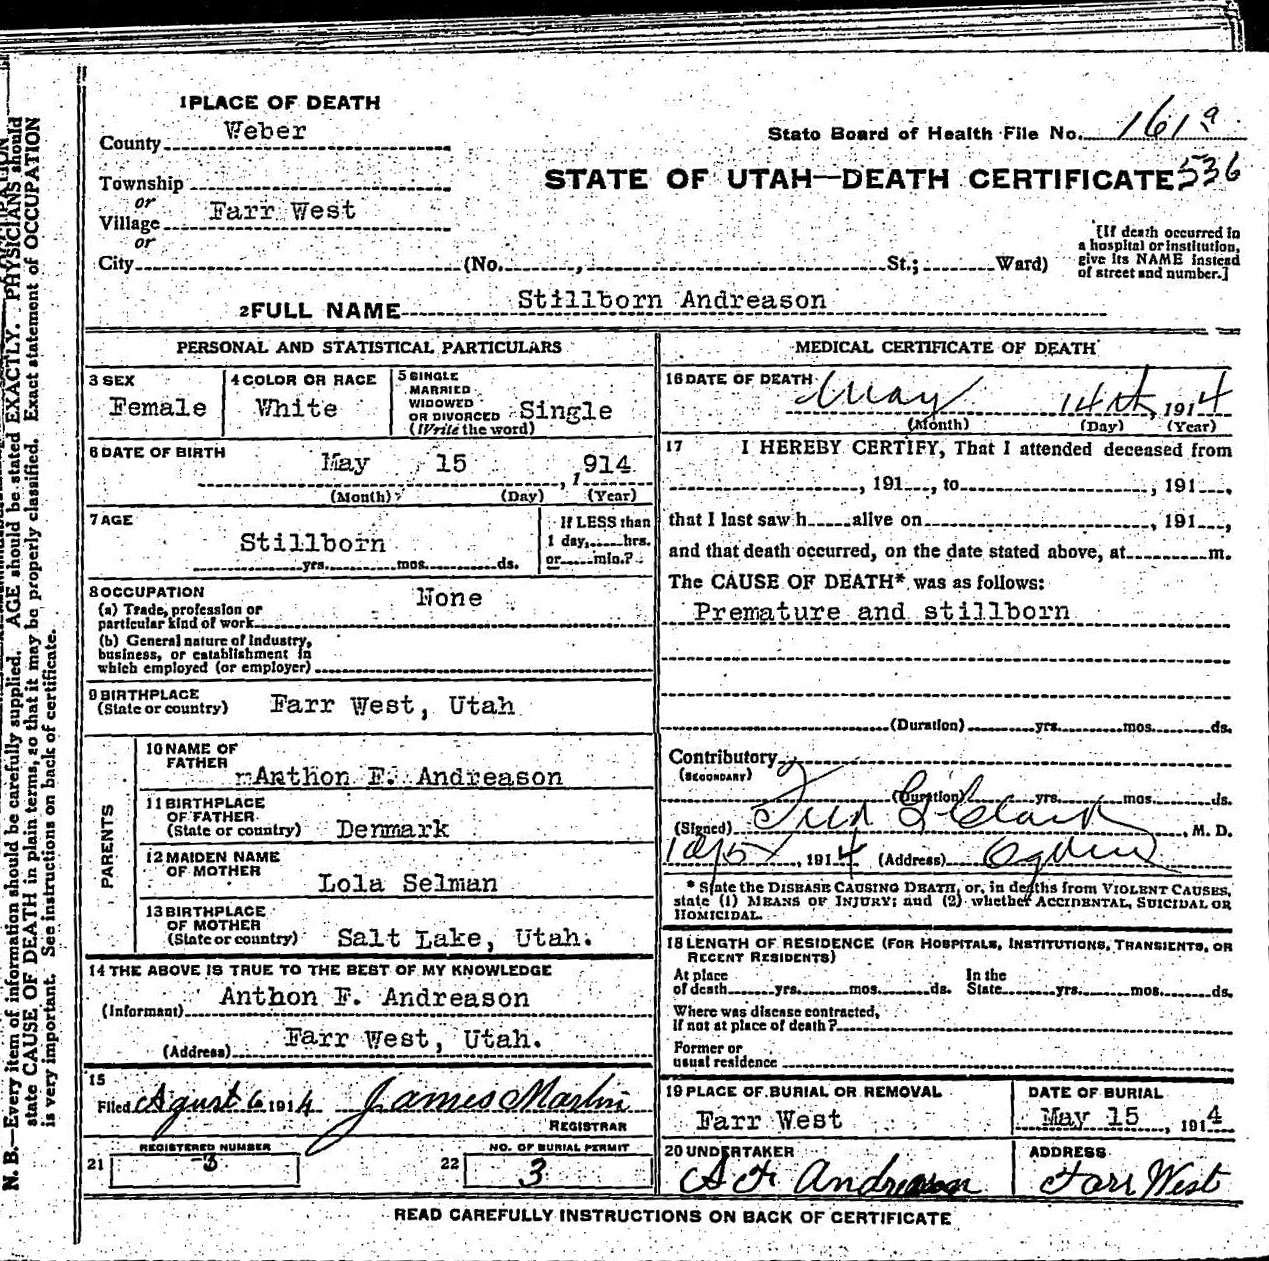 1 PLACE OF DEATH
County Weber
State Board of Health File No. 161a
Township
STATE OF UTAH—DEATH CERTIFICATE 536
or
Village Farr West
or
City (No. , St.; Ward)
[If death occurred in
a hospital or institution,
give its NAME instead
of street and number.]
2 FULL NAME Stillborn Andreason
PERSONAL AND STATISTICAL PARTICULARS
3 SEX
Female
4 COLOR OR RACE
White
5 SINGLE
MARRIED
WIDOWED
OR DIVORCED Single
(Write the word)
6 DATE OF BIRTH
May 15 , 1914
(Month) (Day) (Year)
7 AGE
Stillborn
yrs. mos. ds.
If LESS than
1 day, hrs.
or min.?
8 OCCUPATION None
(a) Trade, profession or
particular kind of work
(b) General nature of Industry,
business, or establishment in
which employed (or employer)
9 BIRTHPLACE
(State or country) Farr West, Utah
PARENTS
10 NAME OF
FATHER
Anthon F. Andreason
11 BIRTHPLACE
OF FATHER
(State or country) Denmark
12 MAIDEN NAME
OF MOTHER
Lola Selman
13 BIRTHPLACE
OF MOTHER
(State or country) Salt Lake, Utah.
14 THE ABOVE IS TRUE TO THE BEST OF MY KNOWLEDGE
(Informant) Anthon F. Andreason
(Address) Farr West, Utah.
15
Filed Agust 6 1914 James Martin
REGISTRAR
REGISTERED NUMBER
21 3
NO. OF BURIAL PERMIT
22 3
MEDICAL CERTIFICATE OF DEATH
16 DATE OF DEATH
May 14th, 1914
(Month) (Day) (Year)
17 I HEREBY CERTIFY, That I attended deceased from
, 191 , to , 191 ,
that I last saw h alive on , 191 ,
and that death occurred, on the date stated above, at m.
The CAUSE OF DEATH* was as follows:
Premature and stillborn
(Duration) yrs. mos. ds.
Contributory
(SECONDARY)
(Duration) yrs. mos. ds.
(Signed) Clark , M. D.
, 1914 (Address) Ogden
* State the DISEASE CAUSING DEATH, or, in deaths from VIOLENT CAUSES,
state (1) MEANS OF INJURY; and (2) whether ACCIDENTAL, SUICIDAL OR
HOMICIDAL.
18 LENGTH OF RESIDENCE (FOR HOSPITALS, INSTITUTIONS, TRANSIENTS, OR
RECENT RESIDENTS)
At place In the
of death yrs. mos. ds. State yrs. mos. ds.
Where was disease contracted,
If not at place of death?
Former or
usual residence
19 PLACE OF BURIAL OR REMOVAL
Farr West
DATE OF BURIAL
May 15 , 1914
20 UNDERTAKER
A F Andreason
ADDRESS
Farr West
READ CAREFULLY INSTRUCTIONS ON BACK OF CERTIFICATE
N. B.—Every item of information should be carefully supplied. AGE should be stated EXACTLY. PHYSICIANS should
state CAUSE OF DEATH in plain terms, so that it may be properly classified. Exact statement of OCCUPATION
is very important. See instructions on back of certificate.